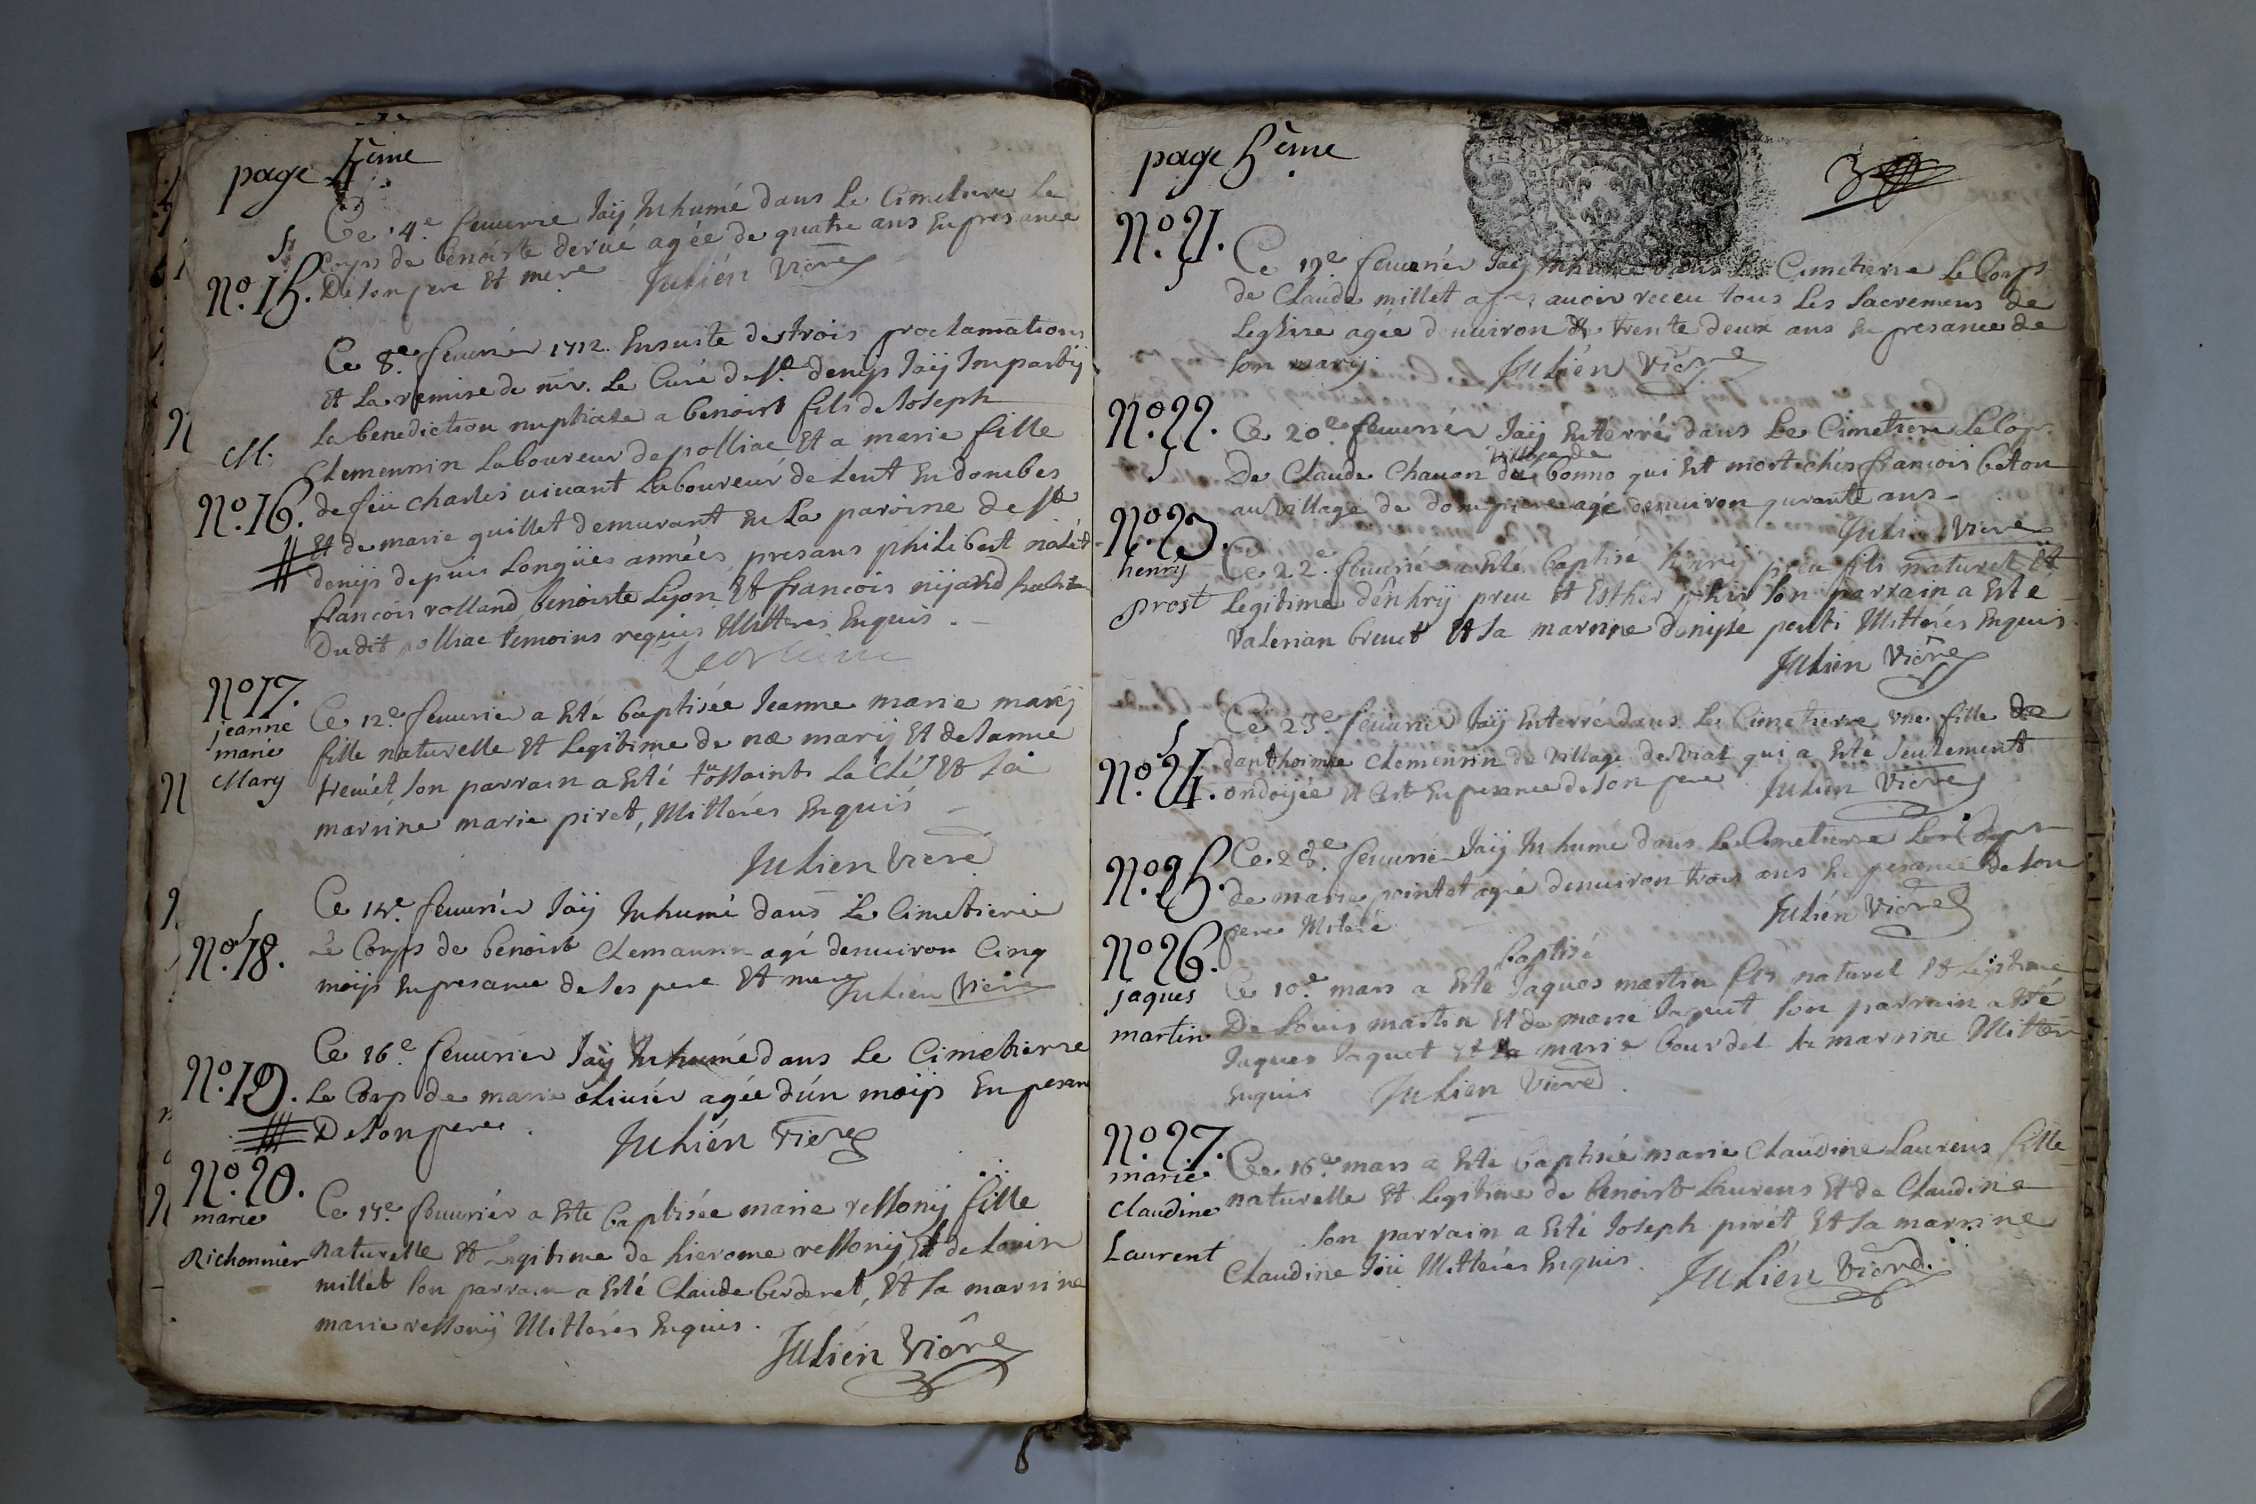 page 4ème
S
N.º 15.
Ce 4.e feuurie Jaÿ Inhumé dans Le Cimetiere Le
Corps de benoiste derué agée de quatre ans En presance
De son pere Et mere Julién Viore
M.
N.º 16.
Ce 8.e feuurier 1712. Ensuite des trois proclamations
Et La remise de mr. Le Curé de st. denys Jaÿ Imparty
La benediction nuptiale a benoist fils de Joseph
Clemennin Laboureur de polliac Et a marie fille
de feu Charles viuant Laboureur de Lent En dombes
Et de marie guillet demurant En La paroise de st
denÿs depuis Longües années, presans philibert
francois rolland benoiste Lyon Et francois nijard
Du dit polliac témoins requis Illitterés Enquis.
N.º 17.
jeanne
marie
Mary
Ce 12.e feuurie a Esté baptisée Jeanne marie marÿ
fille naturelle Et Legitime de marÿ Et de Janne
tremét son parrain a Esté toussaint La clé Et sa
marrine marie piret, Illitterés Enquis
Julien Viere
S
N.º 18.
Ce 14.e feuuriér Jaÿ Inhumé dans Le Cimetiere
Le Corps de benoist Clemannin agé denuiron Cinq
moÿs En presance de ses pere Et mere Julién Viere
N.º 19.
Ce 16.e feuurier Jaÿ Inhumé dans Le Cimetierre
Le Corps de marie oliuiér agée d'ún moÿs En presan
De son pere. Julién Viere
N.º 20.
marie
Richonnier
Ce 17.e feuuriér a Esté baptisée marie ressonÿ fille
naturelle Et Legitime de hierome ressonÿ Et de Louise
millet son parrain a Esté Claude berderet, Et sa marrine
marie ressonÿ Illitterés Enquis.
Julién Viôre
page 5ème
3
N.º 21.
S
Ce 19.e feuuriér Jaÿ Inhumé dans Le Cimetierre Le Corps
de Claude millet apres auoir receu tous Les sacremens de
Leglise agée denuiron trente deux ans En presance de
son marÿ Juliên Viore
N.º 22.
S
Ce 20.e feuuriér Jaÿ Enterré dans Le Cimetiere Le Corps
village de
De Claude Chanon du bonno qui Est mort chés francois beton
au village de dompierre agé denuiron qurante ans
Julien Viere
N.º 23.
henrÿ
prost
Ce 22.e feuurié a Esté baptisé henrÿ preu fils naturel Et
Legitime d'ênhrÿ preu Et Esther son parrain a Esté
Valerian breuet Et sa marrine donise penti Illitterés Enquis
Julién Viôre
S
N.º 24.
Ce 23.e feuurié Jaÿ Enterré dans Le Cimetierre vne fille de
danthoinne Clemennin du village de viat qui a Esté seulement
ondoÿée Et En presance de son pere Julien Viore
N.º 25.
Ce 28.e feuurier Jaÿ Inhumé dans Le Cimetierre Le Corps
de marie pointet agée denuiron trois ans En presance de son
pere Juliên Viore
N.º 26.
jaques
martin
baptisé
Ce 10.e mars a Esté Jaques martin fils naturel Et Legitime
De Louis martin Et de marie Jaquet son parrain a Esté
Jaques Jaquet Et marie bourdel sa marrine Illitterés
Enquis Julien Viere
N.º 27.
marie
Claudine
Laurent
Ce 16.e mars a Esté baptisée marie Claudine Laurens fille
naturelle Et Legitime de benoist Laurens Et de Claudine
son parrain a Esté Joseph pirét Et sa marrine
Claudine Illitterés Enquis. Julién Viore